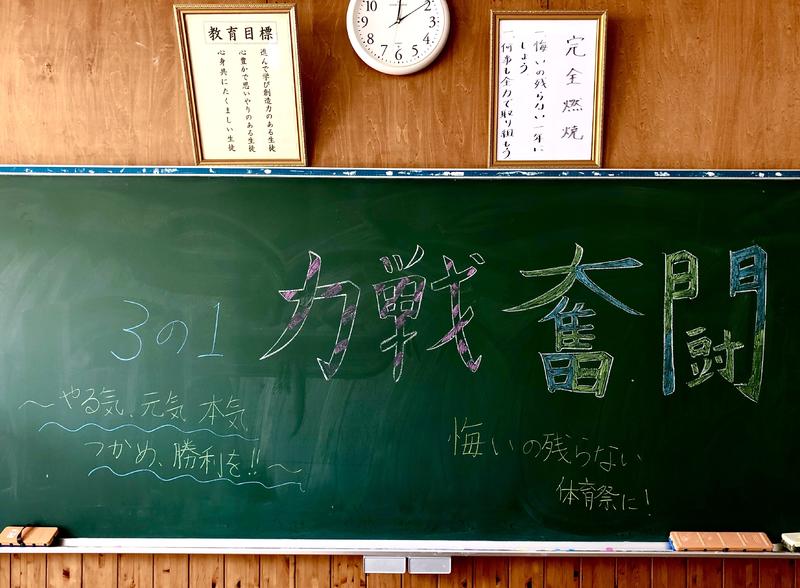 教育目標
進んで学び創造力のある生徒
心豊かで思いやりのある生徒
心身共にたくましい生徒
10 11 12 1 2 3 4 5 6 7 8 9
完全燃焼
一、悔いの残らない一年に
しよう
一、何事も全力で取り組もう
力戦奮闘
3の1
〜やる気、元気、本気
つかめ、勝利を!!〜
悔いの残らない
体育祭に!